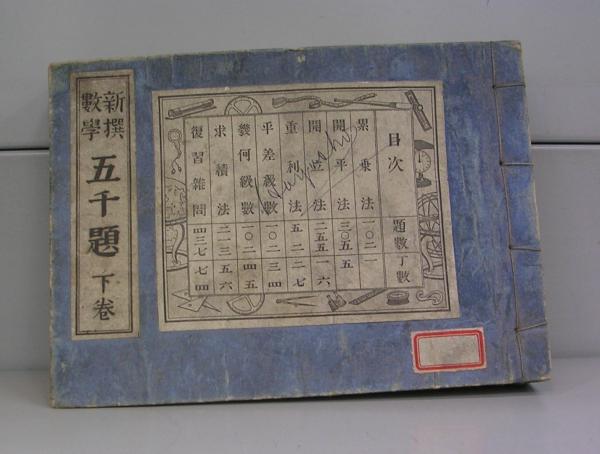 新撰
數學
五千題
下卷
目次 題數 丁數
累乘法 一〇二 一
開平法 三〇五 五
開立法 二五五 一六
重利法 五二 二七
平差級數 一〇二 三四
幾何級數 一〇二 四五
求積法 二一三 五六
復習雜問 四三七 七四